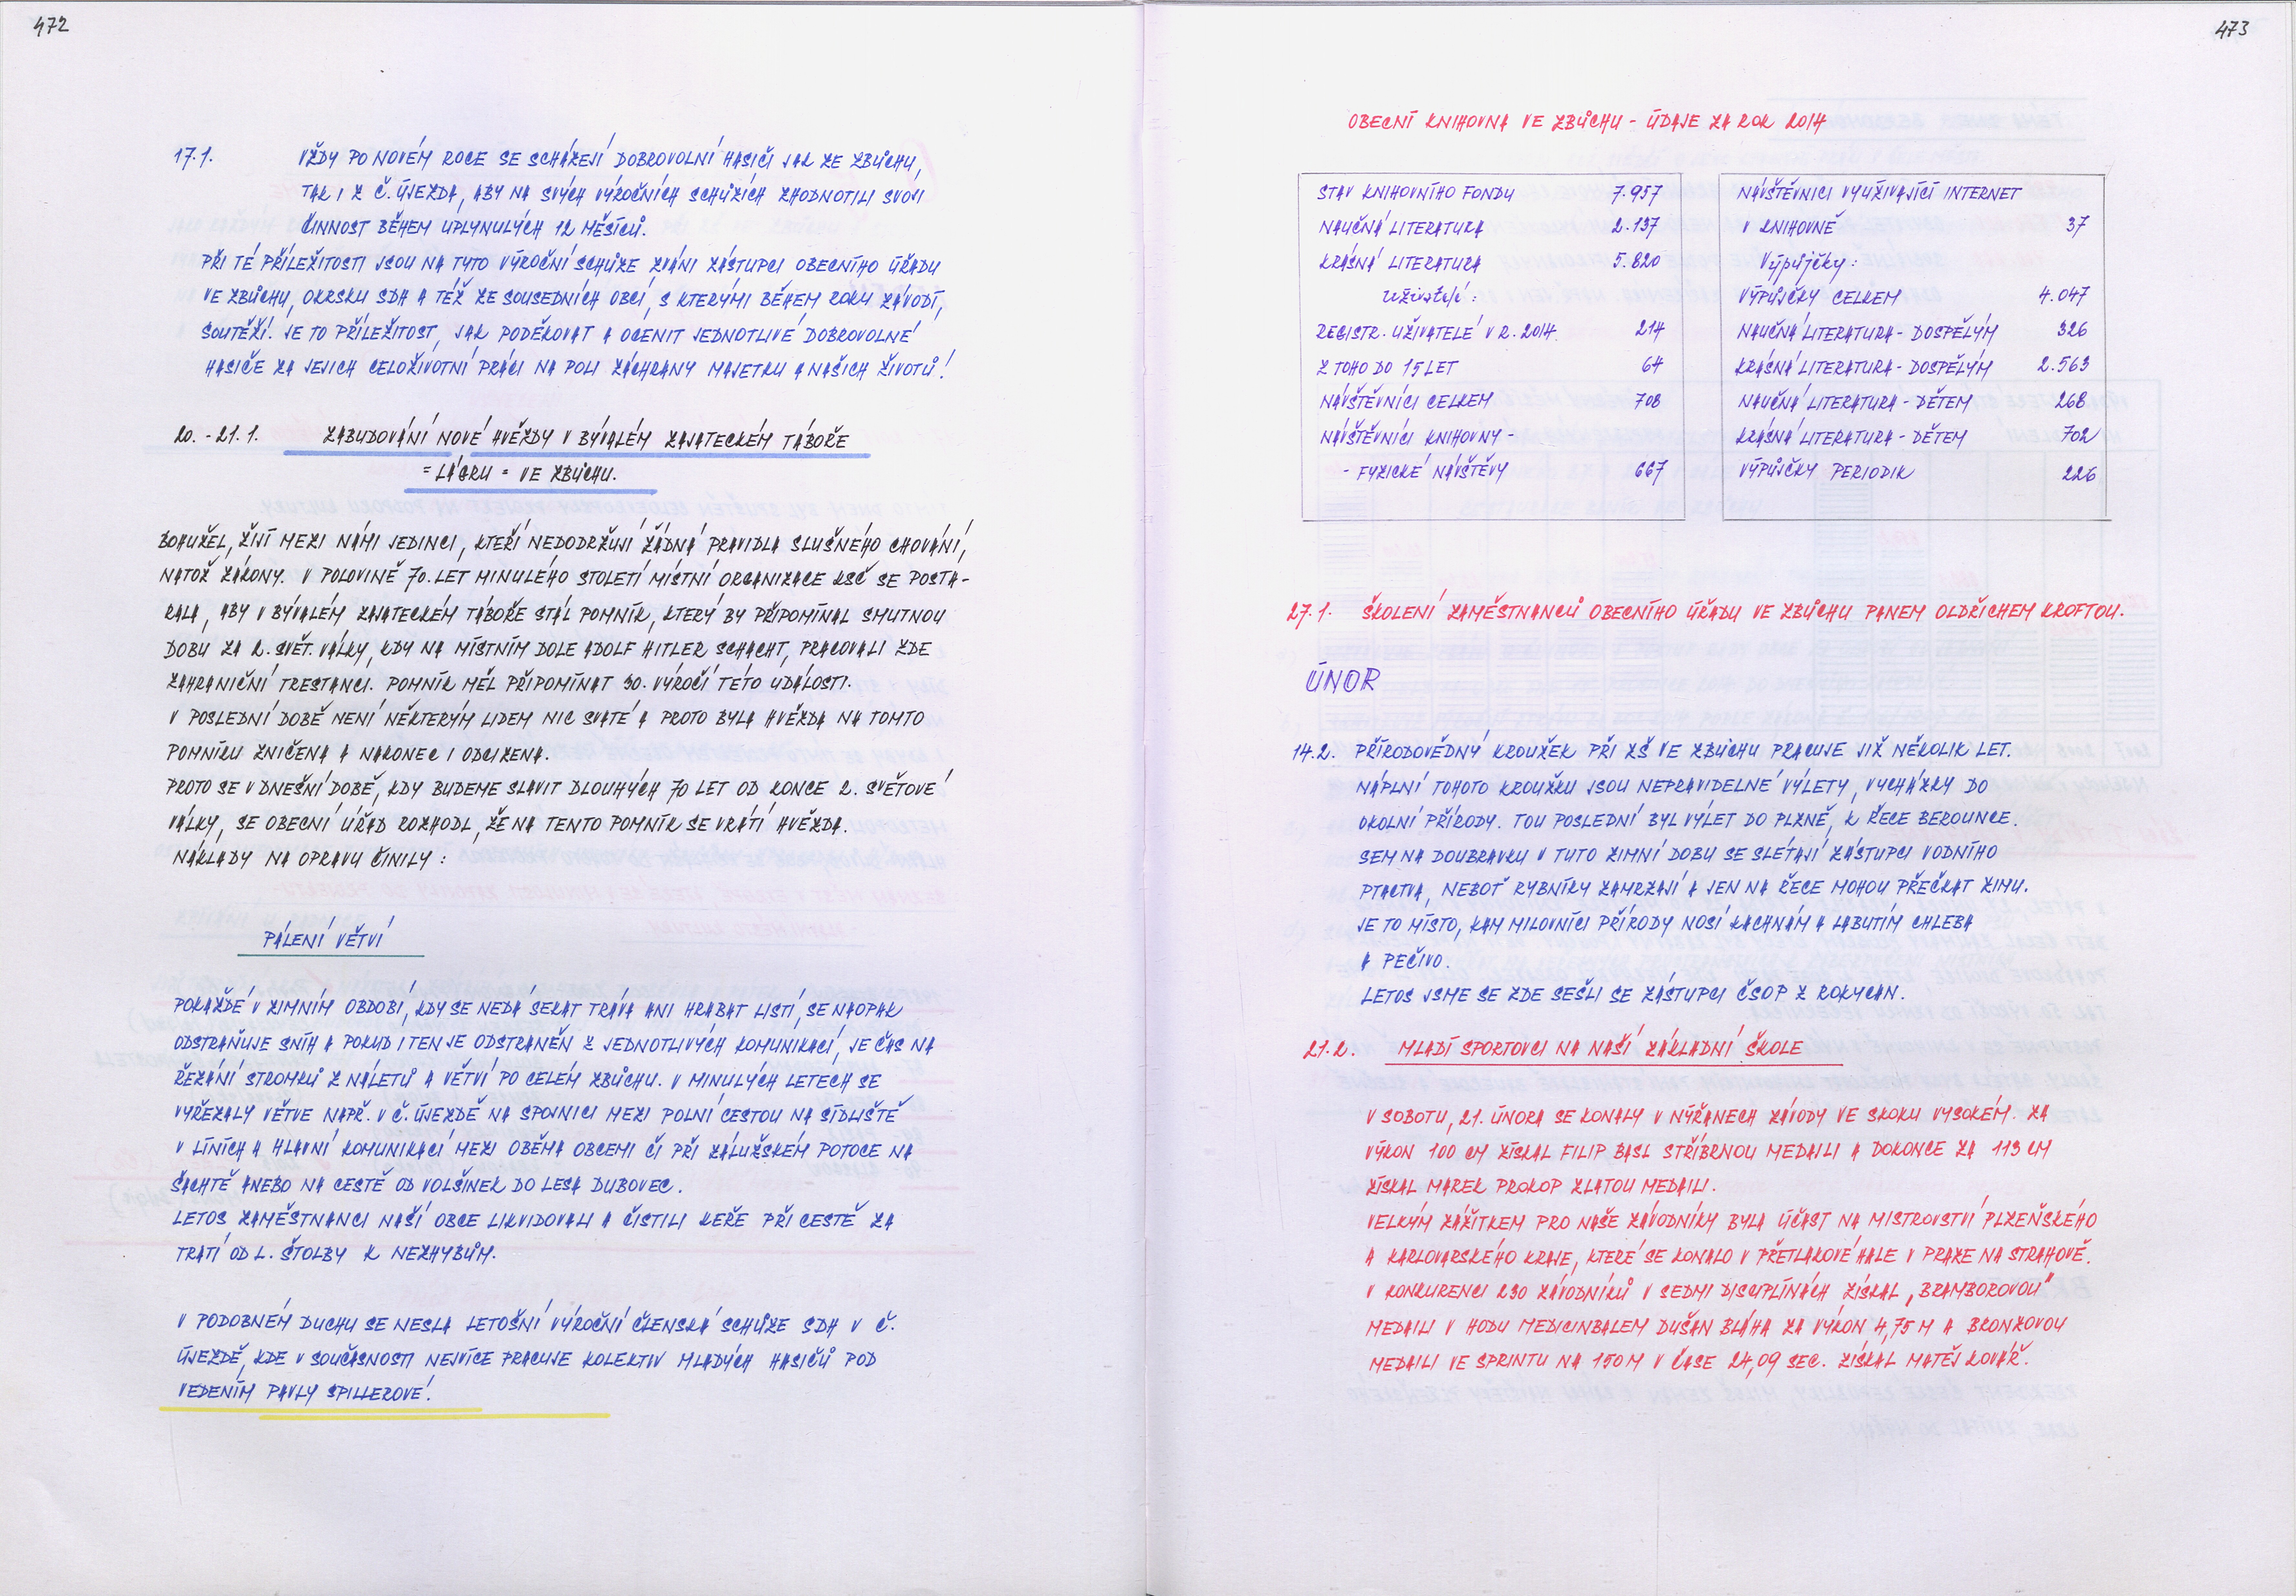 472
17.1. VŽDY PO NOVÉM ROCE SE SCHÁZEJÍ DOBROVOLNÍ HASIČI JAK ZE ZBŮCHU,
TAK I Z Č. ÚJEZDA, ABY NA SVÝCH VÝROČNÍCH SCHŮZÍCH ZHODNOTILI SVOJI
ČINNOST BĚHEM UPLYNULÝCH 12 MĚSÍCŮ.
PŘI TÉ PŘÍLEŽITOSTI JSOU NA TYTO VÝROČNÍ SCHŮZE ZVÁNI ZÁSTUPCI OBECNÍHO ÚŘADU
VE ZBŮCHU, OKRSKU SDH A TÉŽ ZE SOUSEDNÍCH OBCÍ, S KTERÝMI BĚHEM ROKU ZÁVODÍ,
SOUTĚŽÍ. JE TO PŘÍLEŽITOST, JAK PODĚKOVAT A OCENIT JEDNOTLIVÉ DOBROVOLNÉ
HASIČE ZA JEJICH CELOŽIVOTNÍ PRÁCI NA POLI ZÁCHRANY MAJETKU A NAŠICH ŽIVOTŮ!
20. - 21. 1. ZABUDOVÁNÍ NOVÉ HVĚZDY V BÝVALÉM ZAJATECKÉM TÁBOŘE
= LÁGRU = VE ZBŮCHU.
BOHUŽEL, ŽIJÍ MEZI NÁMI JEDINCI, KTEŘÍ NEDODRŽUJÍ ŽÁDNÁ PRAVIDLA SLUŠNÉHO CHOVÁNÍ,
NATOŽ ZÁKONY. V POLOVINĚ 70. LET MINULÉHO STOLETÍ MÍSTNÍ ORGANIZACE KSČ SE POSTA-
RALA, ABY V BÝVALÉM ZAJATECKÉM TÁBOŘE STÁL POMNÍK, KTERÝ BY PŘIPOMÍNAL SMUTNOU
DOBU ZA 2. SVĚT. VÁLKY, KDY NA MÍSTNÍM DOLE ADOLF HITLER SCHACHT, PRACOVALI ZDE
ZAHRANIČNÍ TRESTANCI. POMNÍK MĚL PŘIPOMÍNAT 30. VÝROČÍ TÉTO UDÁLOSTI.
V POSLEDNÍ DOBĚ NENÍ NĚKTERÝM LIDEM NIC SVATÉ A PROTO BYLA HVĚZDA NA TOMTO
POMNÍKU ZNIČENA A NAKONEC I ODCIZENA.
PROTO SE V DNEŠNÍ DOBĚ, KDY BUDEME SLAVIT DLOUHÝCH 70 LET OD KONCE 2. SVĚTOVÉ
VÁLKY, SE OBECNÍ ÚŘAD ROZHODL, ŽE NA TENTO POMNÍK SE VRÁTÍ HVĚZDA.
NÁKLADY NA OPRAVU ČINILY :
PÁLENÍ VĚTVÍ
POKAŽDÉ V ZIMNÍM OBDOBÍ, KDY SE NEDÁ SEKAT TRÁVA ANI HRABAT LISTÍ, SE NAOPAK
ODSTRAŇUJE SNÍH A POKUD I TEN JE ODSTRANĚN Z JEDNOTLIVÝCH KOMUNIKACÍ, JE ČAS NA
ŘEZÁNÍ STROMKŮ Z NÁLETŮ A VĚTVÍ PO CELÉM ZBŮCHU. V MINULÝCH LETECH SE
VYŘEZALY VĚTVE NAPŘ. V Č. ÚJEZDĚ NA SPOJNICI MEZI POLNÍ CESTOU NA SÍDLIŠTĚ
V LÍNÍCH A HLAVNÍ KOMUNIKACÍ MEZI OBĚMA OBCEMI ČI PŘI ZÁLUŽSKÉM POTOCE NA
ŠACHTĚ ANEBO NA CESTĚ OD VOLŠÍNEK DO LESA DUBOVEC.
LETOS ZAMĚSTNANCI NAŠÍ OBCE LIKVIDOVALI A ČISTILI KEŘE PŘI CESTĚ ZA
TRATÍ OD L. ŠTOLBY K NEZHYBŮM.
V PODOBNÉM DUCHU SE NESLA LETOŠNÍ VÝROČNÍ ČLENSKÁ SCHŮZE SDH V Č.
ÚJEZDĚ, KDE V SOUČASNOSTI NEJVÍCE PRACUJE KOLEKTIV MLADÝCH HASIČŮ POD
VEDENÍM PAVLY SPILLEROVÉ.
473
OBECNÍ KNIHOVNA VE ZBŮCHU - ÚDAJE ZA ROK 2014
STAV KNIHOVNÍHO FONDU 7.957
NAUČNÁ LITERATURA 2.137
KRÁSNÁ LITERATURA 5.820
Uživatelé :
REGISTR. UŽIVATELÉ V R. 2014. 214
Z TOHO DO 15 LET 64
NÁVŠTĚVNÍCI CELKEM 708
NÁVŠTĚVNÍCI KNIHOVNY -
- FYZICKÉ NÁVŠTĚVY 667
NÁVŠTĚVNICI VYUŽÍVAJÍCÍ INTERNET
V KNIHOVNĚ 37
Výpůjčky :
VÝPŮJČKY CELKEM 4.047
NAUČNÁ LITERATURA - DOSPĚLÝM 326
KRÁSNÁ LITERATURA - DOSPĚLÝM 2.563
NAUČNÁ LITERATURA - DĚTEM 268
KRÁSNÁ LITERATURA - DĚTEM 702
VÝPŮJČKY PERIODIK 226
27.1. ŠKOLENÍ ZAMĚSTNANCŮ OBECNÍHO ÚŘADU VE ZBŮCHU PANEM OLDŘICHEM KROFTOU.
ÚNOR
14.2. PŘÍRODOVĚDNÝ KROUŽEK PŘI ZŠ VE ZBŮCHU PRACUJE JIŽ NĚKOLIK LET.
NÁPLNÍ TOHOTO KROUŽKU JSOU NEPRAVIDELNÉ VÝLETY, VYCHÁZKY DO
OKOLNÍ PŘÍRODY. TOU POSLEDNÍ BYL VÝLET DO PLZNĚ, K ŘECE BEROUNCE.
SEM NA DOUBRAVKU V TUTO ZIMNÍ DOBU SE SLÉTAJÍ ZÁSTUPCI VODNÍHO
PTACTVA, NEBOŤ RYBNÍKY ZAMRZAJÍ A JEN NA ŘECE MOHOU PŘEČKAT ZIMU.
JE TO MÍSTO, KAM MILOVNÍCI PŘÍRODY NOSÍ KACHNÁM A LABUTÍM CHLEBA
A PEČIVO.
LETOS JSME SE ZDE SEŠLI SE ZÁSTUPCI ČSOP Z ROKYCAN.
21.2. MLADÍ SPORTOVCI NA NAŠÍ ZÁKLADNÍ ŠKOLE
V SOBOTU, 21. ÚNORA SE KONALY V NÝŘANECH ZÁVODY VE SKOKU VYSOKÉM. ZA
VÝKON 100 CM ZÍSKAL FILIP BASL STŘÍBRNOU MEDAILI A DOKONCE ZA 113 CM
ZÍSKAL MAREK PROKOP ZLATOU MEDAILI.
VELKÝM ZÁŽITKEM PRO NAŠE ZÁVODNÍKY BYLA ÚČAST NA MISTROVSTVÍ PLZEŇSKÉHO
A KARLOVARSKÉHO KRAJE, KTERÉ SE KONALO V PŘETLAKOVÉ HALE V PRAZE NA STRAHOVĚ.
V KONKURENCI 230 ZÁVODNÍKŮ V SEDMI DISCIPLÍNÁCH ZÍSKAL „BRAMBOROVOU"
MEDAILI V HODU MEDICINBALEM DUŠAN BLÁHA ZA VÝKON 4,75 M A BRONZOVOU
MEDAILI VE SPRINTU NA 150 M V ČASE 24,09 SEC. ZÍSKAL MATĚJ KOVÁŘ.